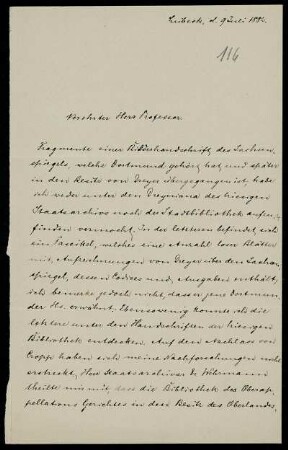 Lübeck, d. 9 Juli 1882.
116
Verehrter Herr Professor
Fragmente einer Bilderhandschrift des Sachsen-
spiegels, welche Dortmund gehört hat, und später
in den Besitz von Dreyer übergegangen ist, habe
ich weder unter den Dreyeriana des hiesigen
Staatsarchivs noch der Stadtbibliothek aufzu-
finden vermocht, in der letzteren befindet sich
ein Fascikel, welches eine Anzahl lose Blätter
mit Aufzeichnungen von Dreyer über den Sachsen-
spiegel, dessen Codices und Ausgaben enthält,
ich bemerke jedoch nicht, dass er jene Dortmun-
der Hs. erwähnt. Ebensowenig konnte ich die
letztere unter den Handschriften der hiesigen
Bibliothek entdecken. Auf den Nachlass von
Cropp haben sich meine Nachforschungen nicht
erstreckt, Herr Staatsarchivar Dr. Wehrmann
theilte mir mit, dass die Bibliothek des Oberap-
pellations Gerichtes in dem Besitz des Oberlandes-